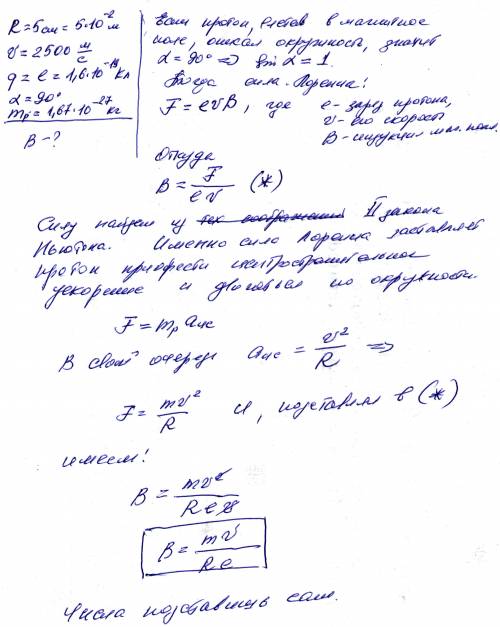 R = 5см = 5·10⁻² м
v = 2500 м/с
q = e = 1,6·10⁻¹⁹ Кл
α = 90°
mp = 1,67·10⁻²⁷ кг
B - ?
Если протон, влетев в магнитное
поле, описал окружность, значит
α = 90° => sin α = 1.
Тогда сила Лоренца:
F = evB, где e - заряд протона,
v - его скорость
B - индукция маг. поля.
Откуда
B = F/ev (*)
Силу найдем из тех соображений II закона
Ньютона. Именно сила Лоренца заставляет
протон приобрести центростремительное
ускорение и двигаться по окружности.
F = mp aцс
В свою очередь aцс = v²/R =>
F = mv²/R И, подставляя в (*)
имеем:
B = mv²/Rev
B = mv/Re
Числа подставишь сам.